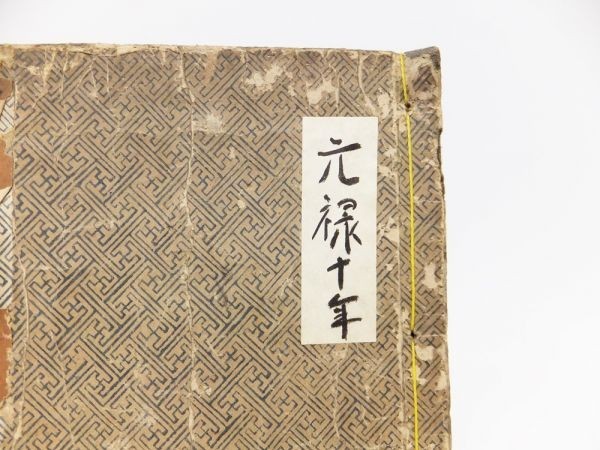 元禄十年